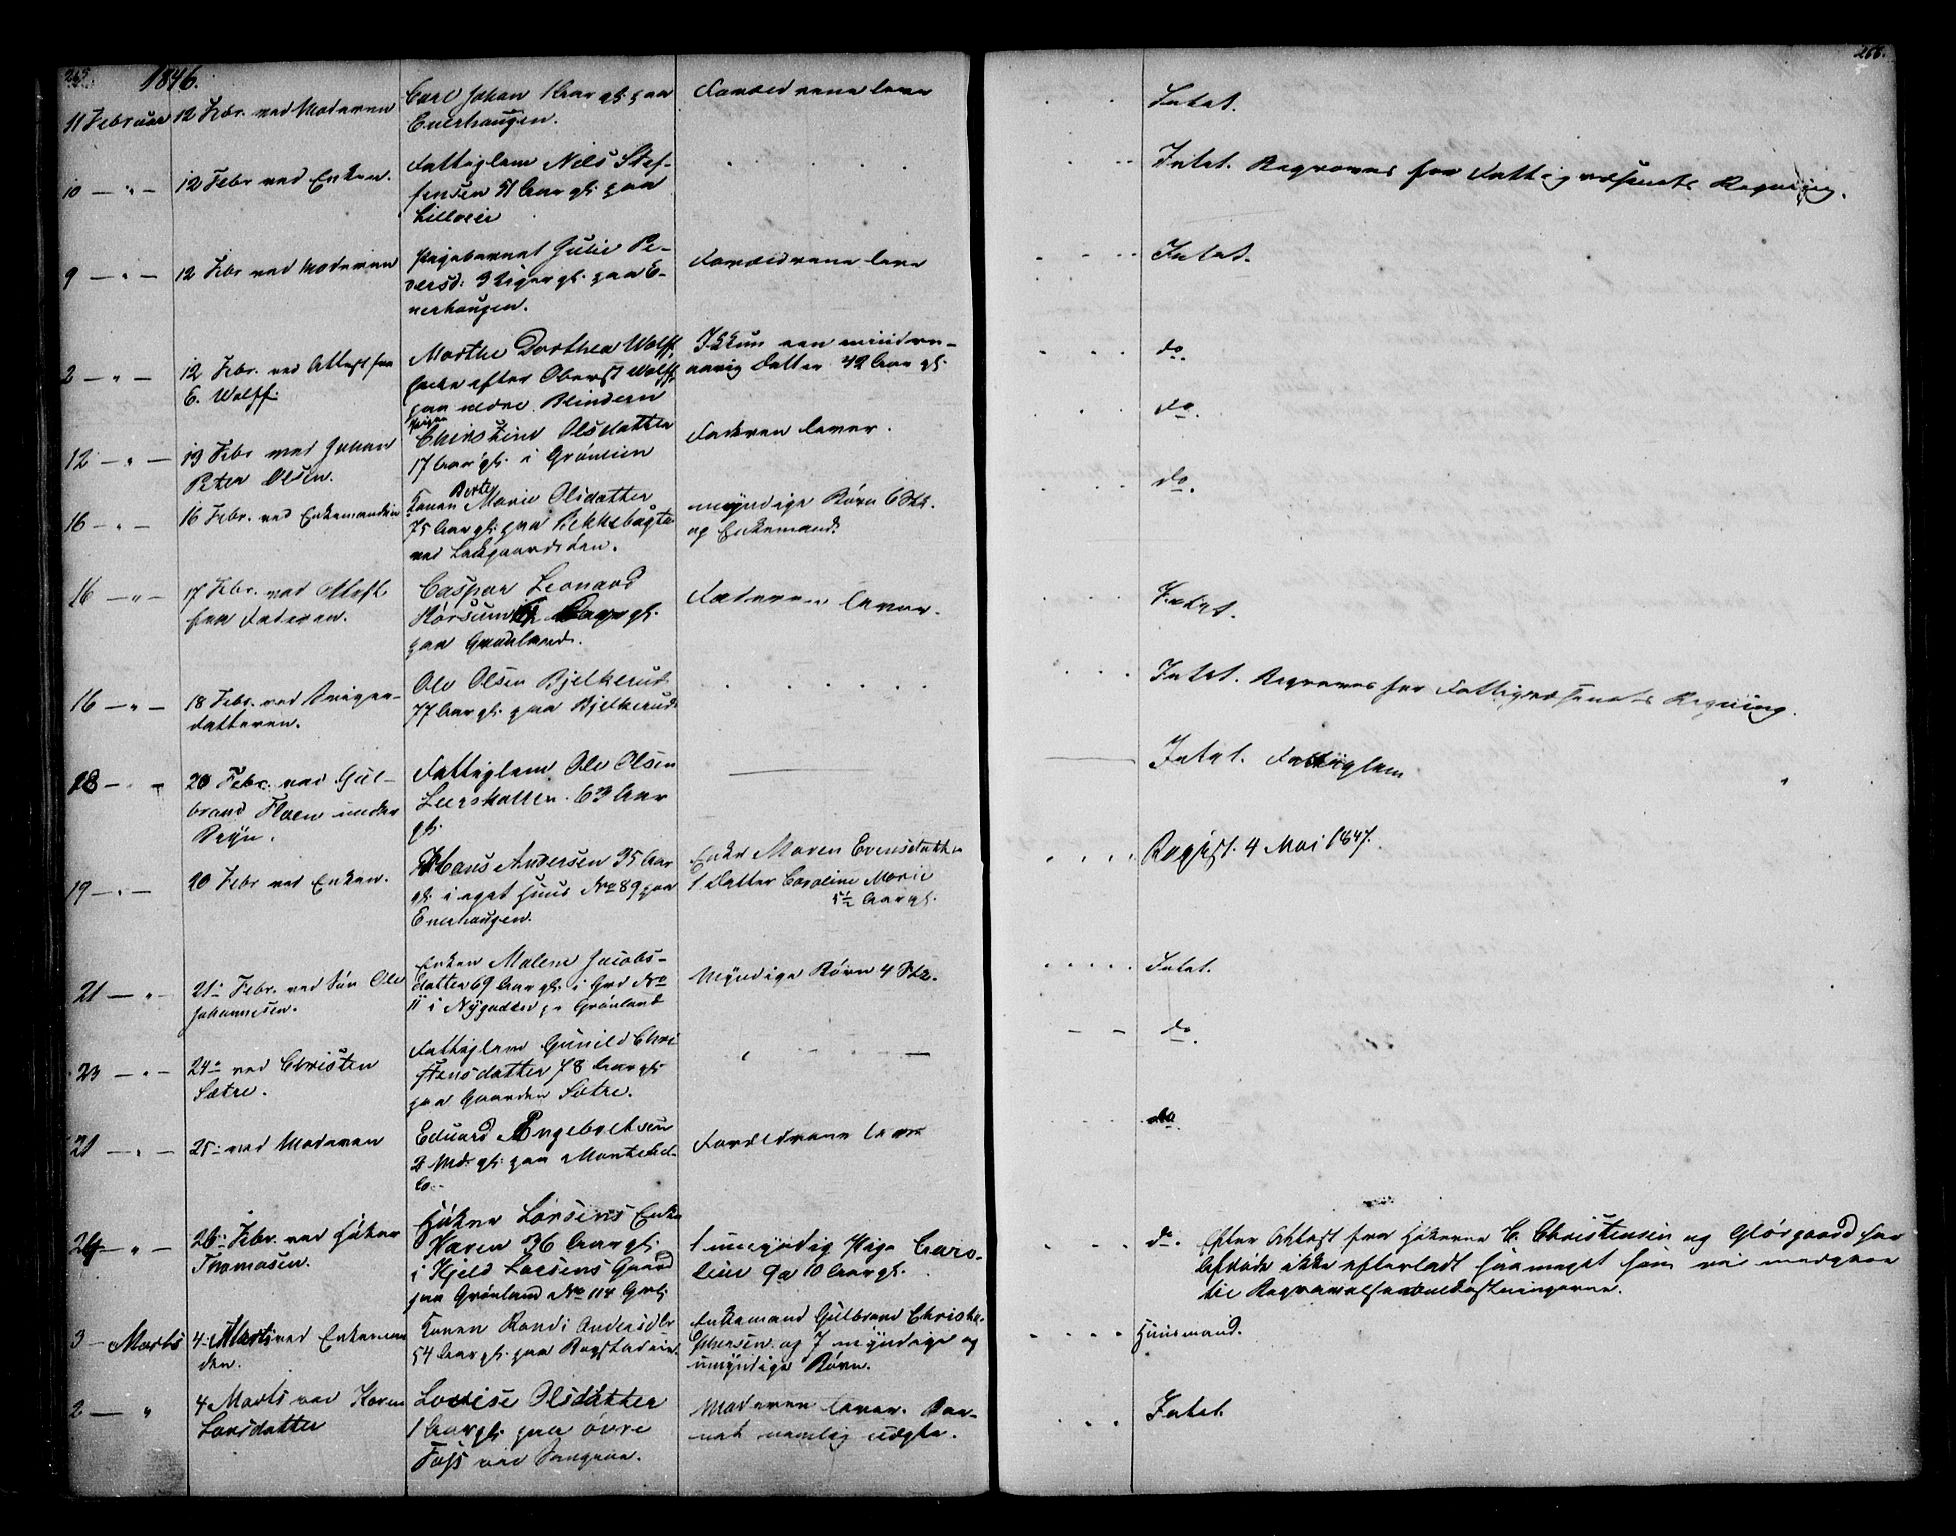 265.
1846.
268.
11 Februar
12 Febr. ved Moderen
Carl Johan 1 Aar gl: paa
Enerhaugen.
Forældrene leve
Intet.
10 — " —
12 Febr ved Enken.
Fattiglem Nils Stef-
fensen 51 Aar gl: paa
Lilloeier
Intet. Begraves for Fattigvæsenets Regning.
9 — " —
12 Febr ved Moderen
Pigebarnet Julie Pe-
dersd: 3 Uger gl: paa E-
nerhaugen.
Forældrene leve
Intet.
2 — " —
12 Febr. ved Attest fra
C. Wolff.
Marthe Dorthea Wolff,
Enke efter Oberst Wolff
paa nedre Blindern
Ikkun een mindre-
aarig Datter 42 Aar gl:
do.
12 — " —
13 Febr ved Johan
Peter Olsen.
Pigen
Christine Olsdatter
17 Aar gl: i Grønlien
Faderen lever.
do.
16 — " —
16 Febr. ved Enkemanden
Konen Berte Marie Olsdatter
75 Aar gl: paa Bekkebugten
ved Ladegaardsøen.
myndige Børn 6 Stk.
og Enkemand.
do.
16 — " —
17 Febr. ved Attest
fra Faderen.
Caspar Leonard
Korsum Aar gl:
paa Grønland.
Faderen lever.
Intet.
16 — " —
18 Febr. ved Sviger-
datteren.
Ole Olsen Bjelkerud
77 Aar gl: paa Bjelkerud.
Intet. Begraves for Fattigvæsenets Regning.
18 — " —
20 Febr. ved Gul-
brand Floen under
Bryn.
Fattiglem Ole Olsen
Leerskallen 63 Aar
gl:
Intet. Fattiglem
19 — " —
20 Febr ved Enken.
Hans Andersen 35 Aar
gl: i eget Huus No 89 paa
Enerhaugen.
Enke Maren Evensdatter
1 Datter Caroline Marie
5½ Aar gl.
Regist. 4 Mai 1847.
21 — " —
21: Febr. ved Søn Ole
Johannesen.
Enken Malene Jacobs-
datter 69 Aar gl: i Grd No
11 i Nygaden p: Grønland
Myndige Børn 4 Stk.
Intet.
23 — " —
24: ved Christen
Sætre.
Fattiglem Gunild Chri
stensdatter 78 Aar gl:
paa Gaarden Sætre.
do.
21 — " —
25: ved Moderen
Eduard Engebretsen
2 Md: gl: paa Montebel-
lo.
Forældrene leve
do.
24 — " —
26: Febr. ved Høker
Thomasen.
Høker Larsens Enke
Karen 36 Aar gl:
i Kjeld Larsens Gaard
paa Grønland No 114 Grl:
1 umyndig Pige Caro-
line 9 a 10 Aar gl.
do. Efter Attest fra Hökerne C. Christensen og Glørgaard har
Afdøde ikke efterladt saa meget som vil medgaae
til Begravelsesomkostningerne.
3 — Marts
4 Marts ved Enkeman
den.
Konen Randi Andersdtr
54 Aar gl: paa Bogstadeie.
Enkemand Gulbrand Christo-
phersen og 7 myndige og
umyndige Børn.
Huusmand.
2 — "
4 Marts ved Karen
Larsdatter
Lovise Olsdatter
1 Aar gl: paa øvre
Foss ved Sangene.
Moderen lever. Bar-
net nemlig uægte.
Intet.